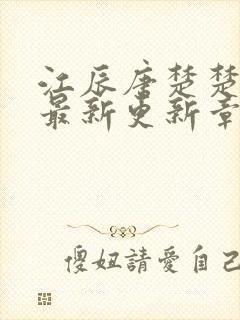 江辰唐楚楚
最新更新章
傻妞請愛自己